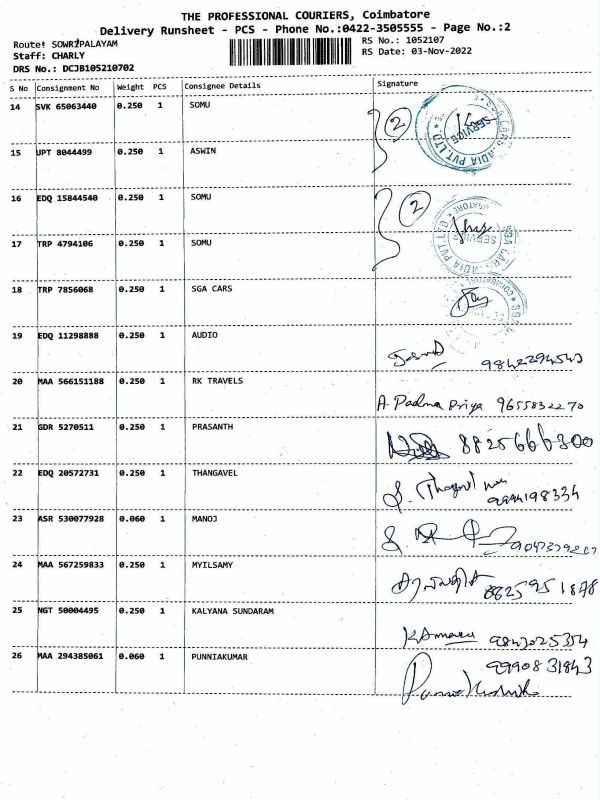 THE PROFESSIONAL COURIERS, Coimbatore
Delivery Runsheet - PCS - Phone No.:0422-3505555 - Page No.:2
Route: SOWRIPALAYAM
RS No.: 1052107
Staff: CHARLY
RS Date: 03-Nov-2022
DRS No.: DCJB105210702
S No Consignment No Weight PCS Consignee Details Signature
14 SVK 65063440 0.250 1 SOMU
2
SERVICE
15 UPT 8044499 0.250 1 ASWIN
16 EDQ 15844540 0.250 1 SOMU
2
17 TRP 4794106 0.250 1 SOMU
18 TRP 7856068 0.250 1 SGA CARS
19 EDQ 11298888 0.250 1 AUDIO
9842294543
20 MAA 566151188 0.250 1 RK TRAVELS
A. Padma Priya 9655832270
21 GDR 5270511 0.250 1 PRASANTH
8825666300
22 EDQ 20572731 0.250 1 THANGAVEL
9994198334
23 ASR 530077928 0.060 1 MANOJ
24 MAA 567259833 0.250 1 MYILSAMY
8825951878
25 NGT 50004495 0.250 1 KALYANA SUNDARAM
9843025354
26 MAA 294385061 0.060 1 PUNNIAKUMAR
9990831843